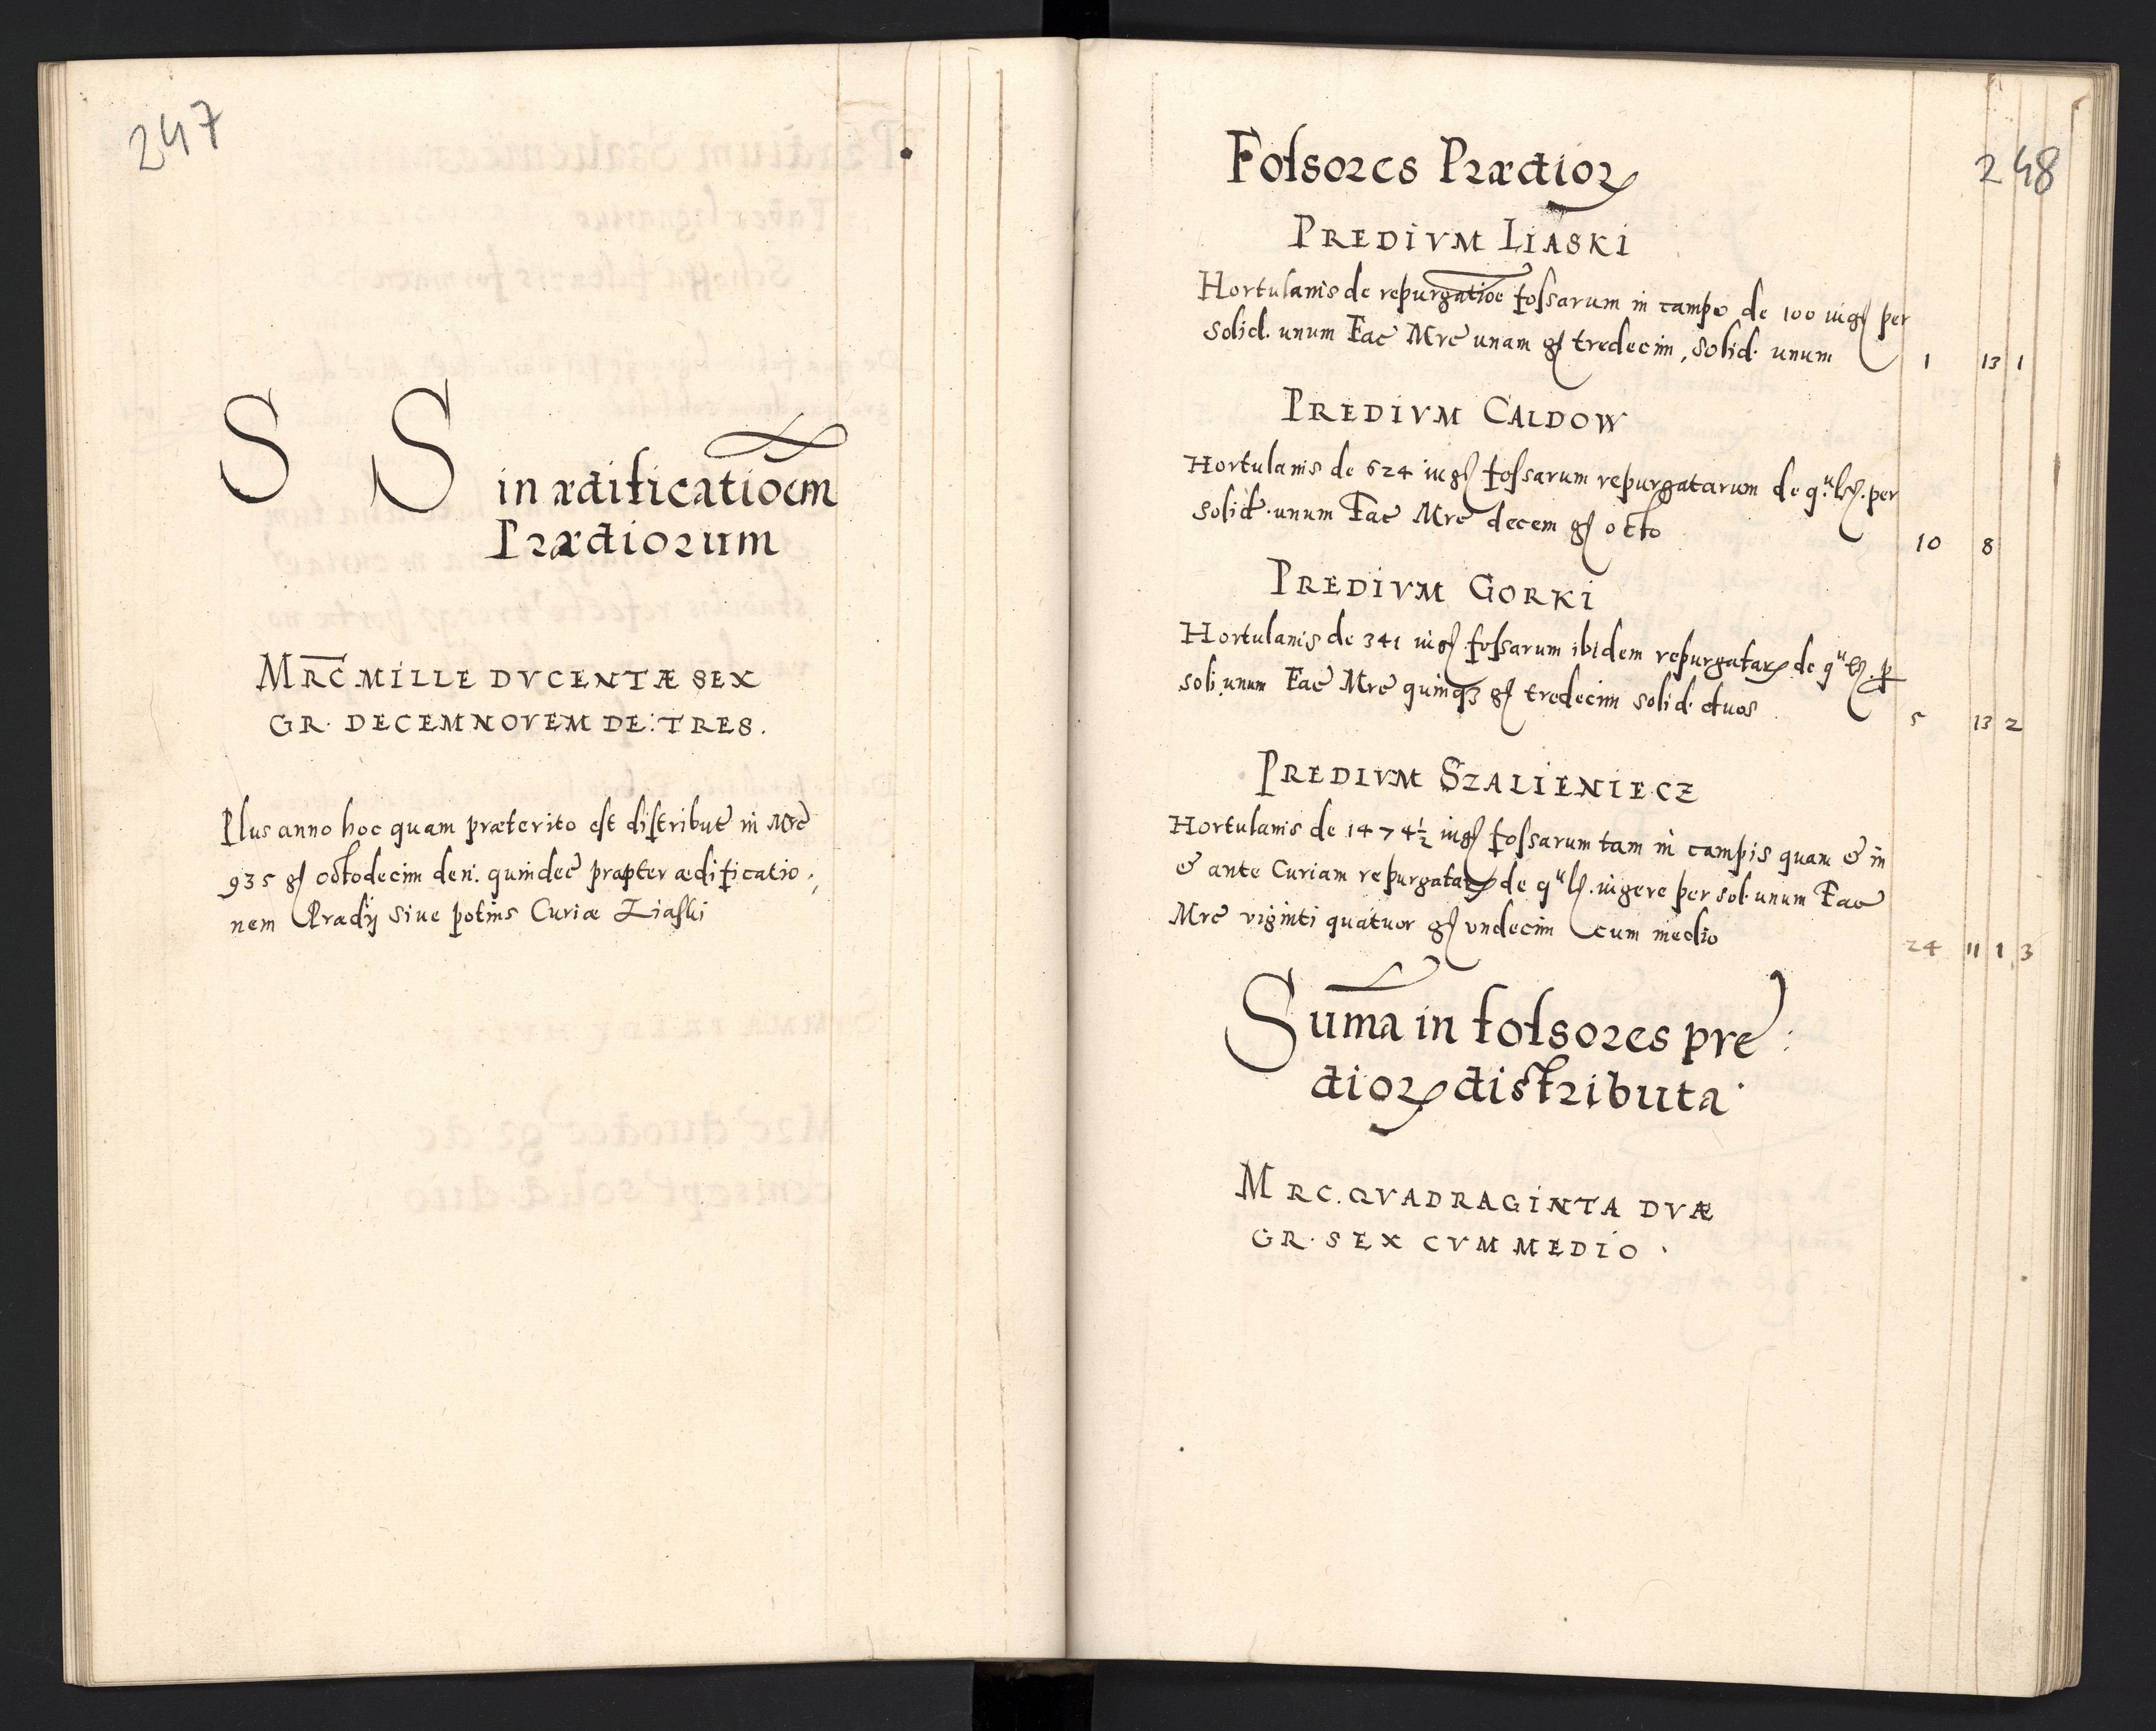 247
S S in ædificatioēm
Prædiorum
MRC MILLE DVCENTÆ SEX
GR. DECEM NOVEM DE: TRES.
Plus anno hoc quam præterito est distribut in Mrc
935 gſ octodecim den. quindec propter ædificatio
nem Prædij siue potius Curiæ Liaski
248
Fossores Prædioꝝ
PREDIVM LIASKI
Hortulanis de repurgatioe fossarum in campo de 100 iugſ per
solid. unum Fac Mrc unam gſ tredecim, solid. unum 1 13 1
PREDIVM CALDOW
Hortulanis de 624 iugſ fossarum repurgatarum de qᵘlꝫ. per
solid. unum Fac Mrc decem gſ octo 10 8
PREDIVM GORKI
Hortulanis de 341 iugſ fossarum ibidem repurgataꝝ de qᵘlꝫ. ꝑ
soli. unum Fac Mrc quinqꝫ gſ tredecim solid. duos 5 13 2
PREDIVM SZALIENIECZ
Hortulanis de 1474½ iugſ fossarum tam in campis quam & in
& ante Curiam repurgataꝝ de qᵘlꝫ. iugere per sol. unum Fac
Mrc viginti quatuor gſ vndecim cum medio 24 11 1 3
Suma in fossores pre
dioꝝ distributa
MRC. QVADRAGINTA DVÆ
GR. SEX CVM MEDIO.